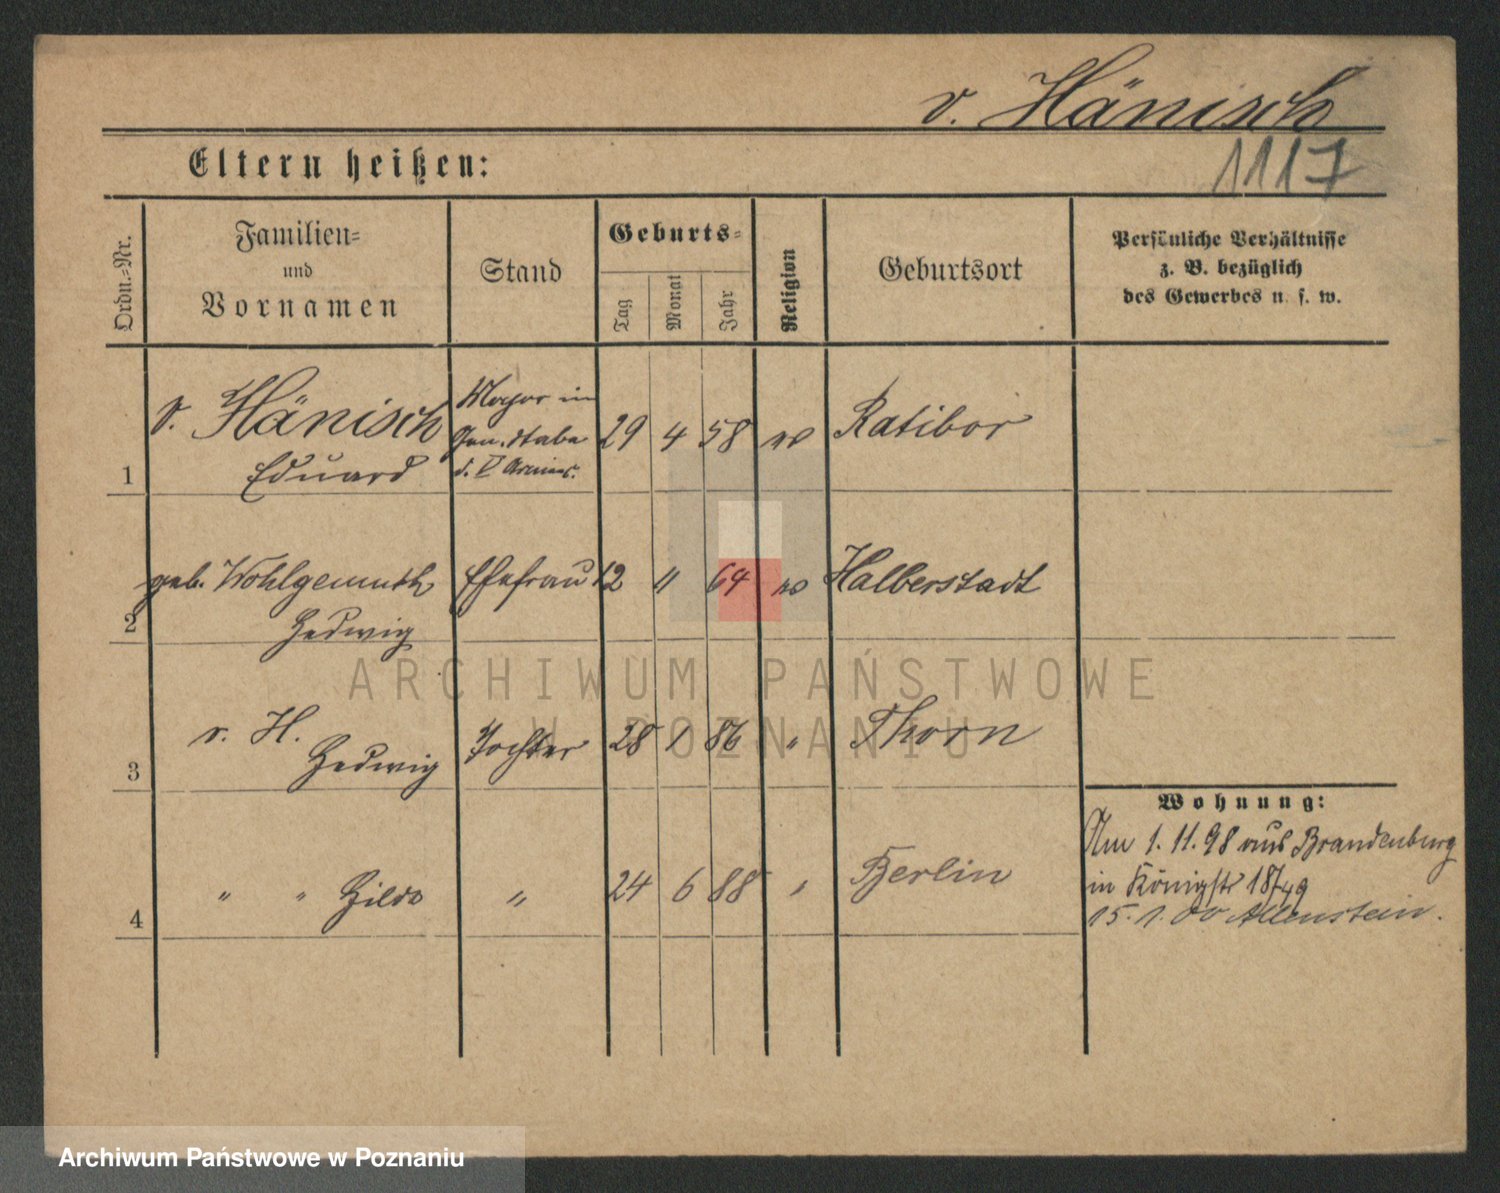 v. Hänisch
Eltern heißen:
1117
Ordn.-Nr.
Familien-
und
Vornamen
Stand
Geburts-
Tag
Monat
Jahr
Religion
Geburtsort
Persönliche Verhältnisse
z. B. bezüglich
des Gewerbes u. s. w.
1
v. Hänisch
Eduard
Major im
Gen. stabe
d. V Armeec.
29 4 58
Ratibor
2
geb. Wohlgemuth
Hedwig
Ehefrau
12 11 64
Halberstadt
3
v. H.
Hedwig
Tochter
28 1 86 "
Thorn
4
" " Hilda
"
24 6 88 "
Berlin
Wohnung:
Am 1. 11. 98 aus Brandenburg
in Königstr 18/19
15. 1. 00 Allenstein.
ARCHIWUM PAŃSTWOWE
W POZNANIU
Archiwum Państwowe w Poznaniu